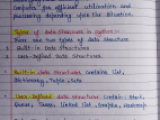 Computers for efficient utilization and
processing depending upon the situation.
Types of Data Structure in python :-
There are two types of Data Structure
1. Built-in Data Structures
2. User-Defined Data Structures.
Built-in Data Structures contains list,
Dictionary, Tuple, Sets
User-Defined Data Structures Contain: Stack,
Queues, Trees, Linked list, Graphs, Hashmap